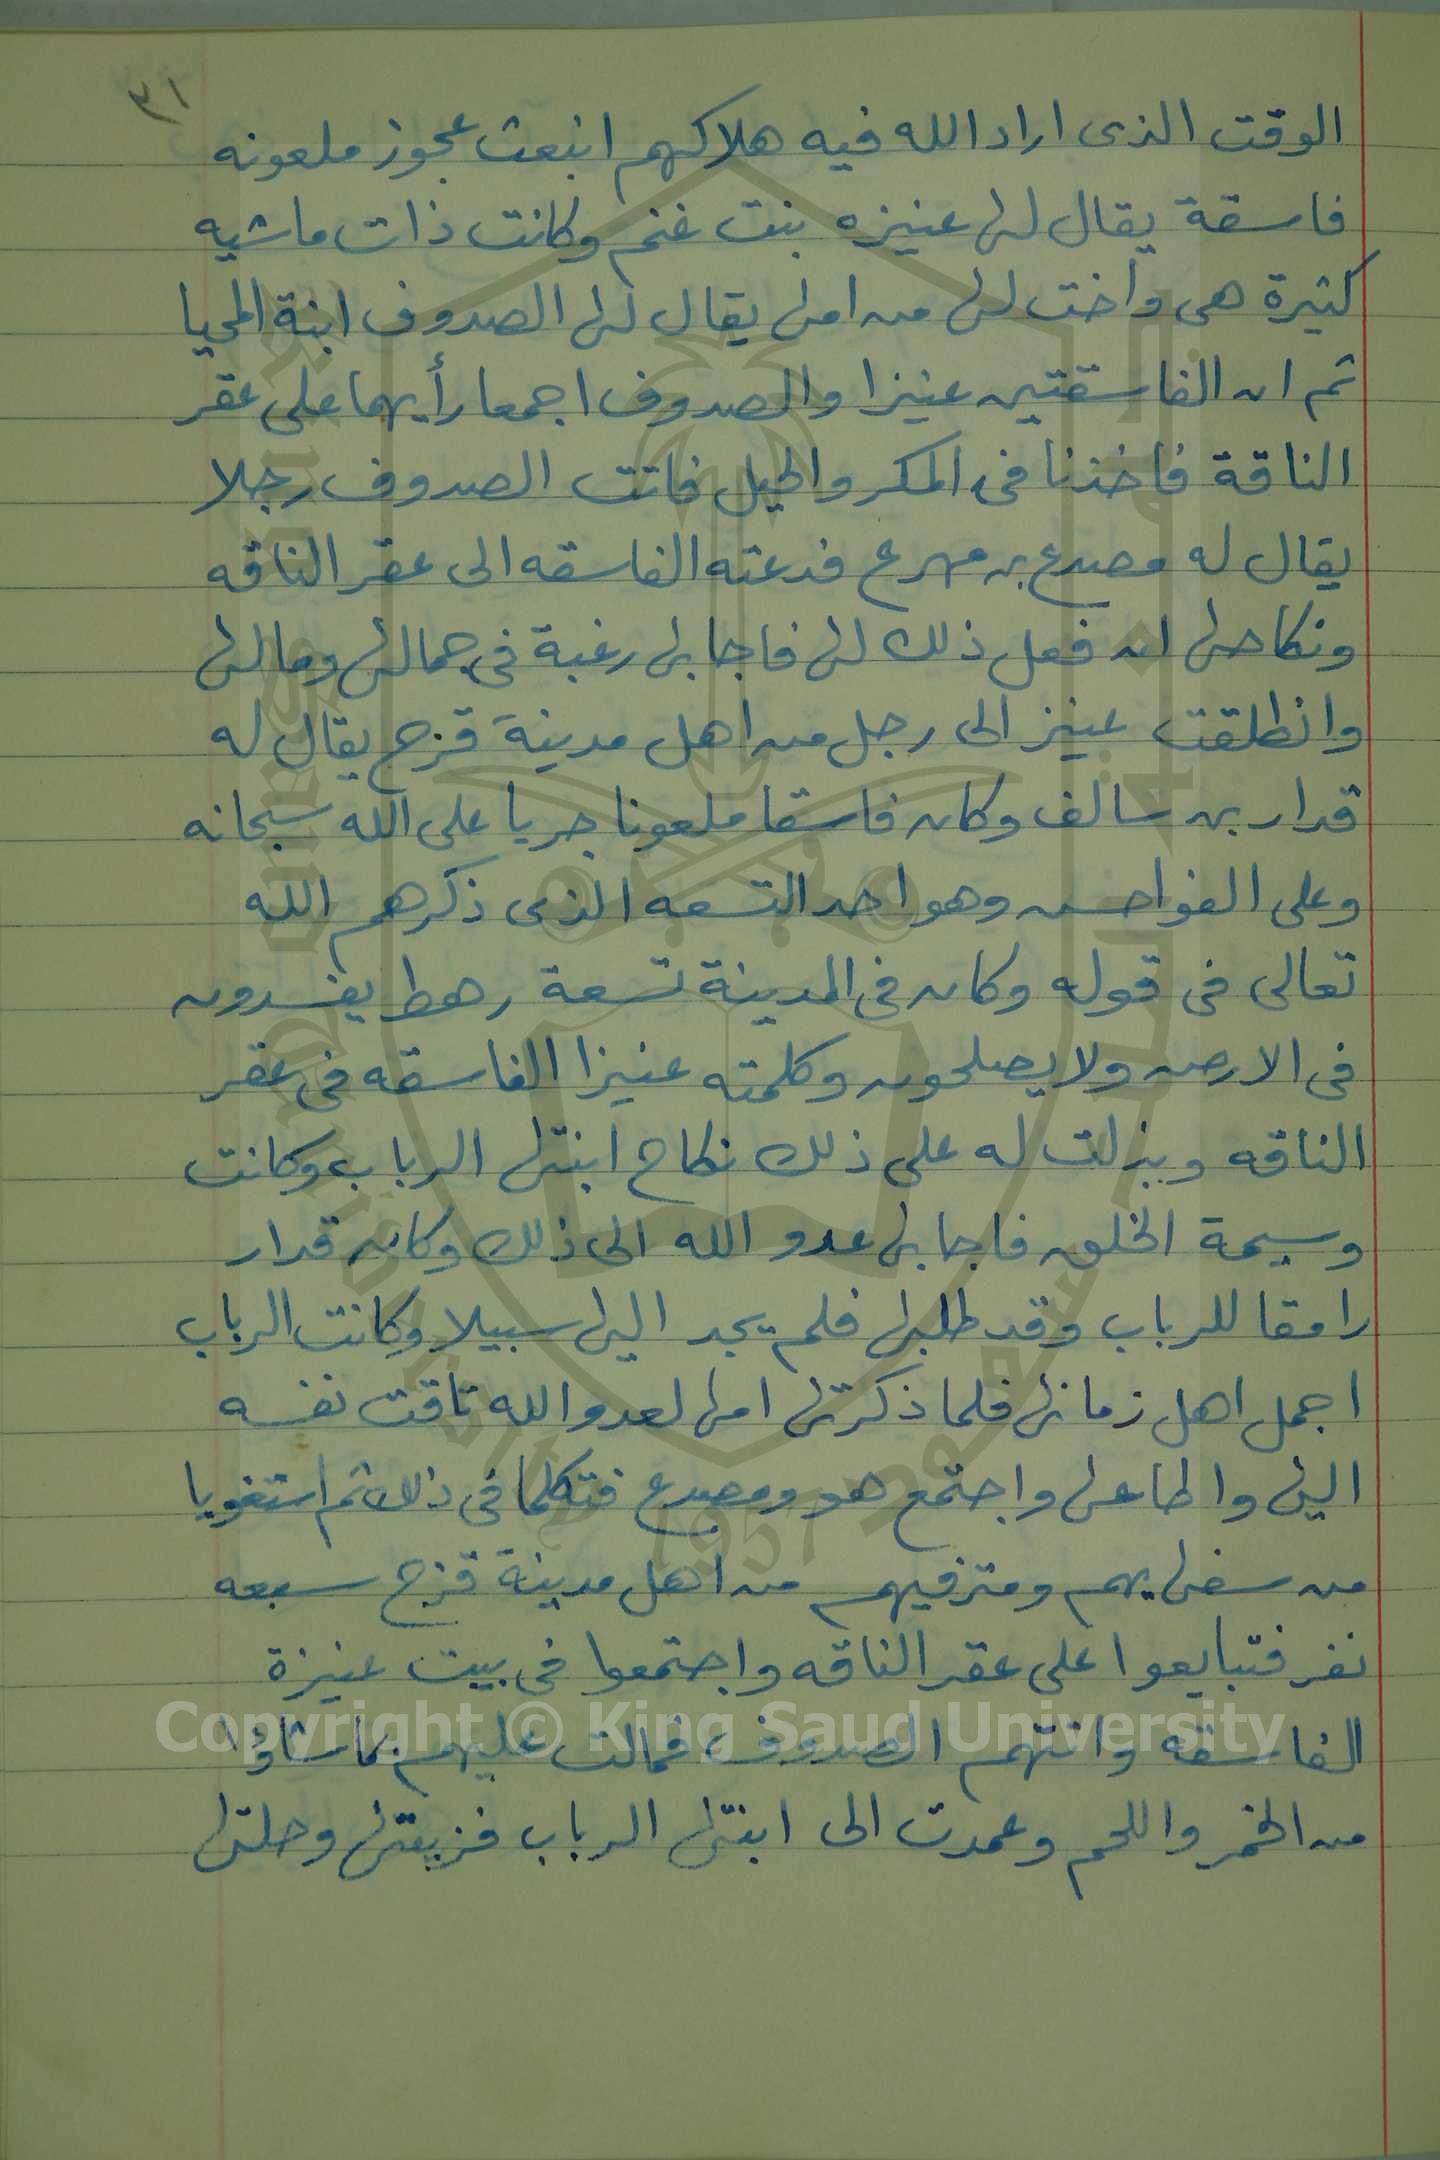 ٣١
الوقت الذى اراد الله فيه هلاكهم انبعث عجوز ملعونه
فاسقة يقال لها عنيزه بنت غنم وكانت ذات ماشيه
كثيرة هى وأخت لها من امها يقال لها الصدوف ابنة المحيا
ثم ان الفاسقتين عنيزا والصدوف اجمعا رأيهما على عقر
الناقة فاخذنا فى المكر والحيل فاتت الصدوف رجلا
يقال له مصدع بن مهرع فدعته الفاسقه الى عقر الناقه
ونكاحها ان فعل ذلك لها فاجابها رغبة فى جمالها ومالها
وانطلقت عنيز الى رجل من اهل مدينة قزح يقال له
قدار بن سالف وكان فاسقا ملعونا جريا على الله سبحانه
وعلى الفواحس وهو احد التسعه الذى ذكرهم الله
تعالى فى قوله وكان فى المدينة تسعة رهط يفسدون
فى الارض ولا يصلحون وكلمته عنيزا الفاسقه فى عقر
الناقه وبذلت له على ذلك نكاح ابنتها الرباب وكانت
وسيمة الخلق فاجابها عدو الله الى ذلك وكان قدار
رامقا للرباب وقد طلبها فلم يجد اليها سبيلا وكانت الرباب
اجمل اهل زمانها فلما ذكرتها امها لعدو الله تاقت نفسه
اليها واطاعها واجتمع هو ومصدع فتكلما فى ذلك ثم استغويا
من سفهايهم ومترفيهم من اهل مدينة قزح سبعه
نفر فتبايعوا على عقر الناقه واجتمعوا فى بيت عنيزة
الفاسقه واتتهم الصدوف فمالت عليهم بما شاؤا
من الخمر واللحم وعمدت الى ابنتها الرباب فزينتها وحلتها
Copyright © King Saud University
King Saud University
1957
جامعة الملك سعود